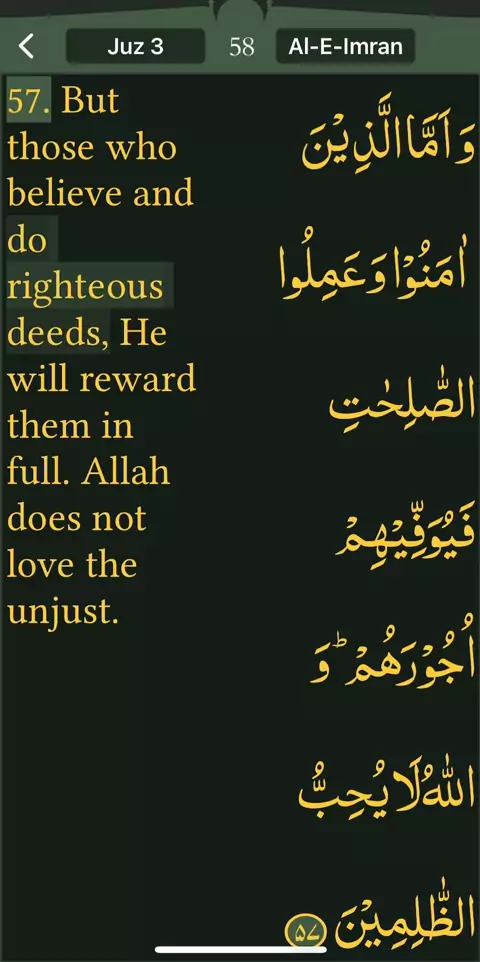 Juz 3 58 Al-E-Imran
57. But
those who
believe and
do
righteous
deeds, He
will reward
them in
full. Allah
does not
love the
unjust.
وَ اَمَّا الَّذِیْنَ
اٰمَنُوْا وَ عَمِلُوا
الصّٰلِحٰتِ
فَیُوَفِّیْهِمْ
اُجُوْرَهُمْ ؕ وَ
اللّٰهُ لَا یُحِبُّ
الظّٰلِمِیْنَ ۵۷